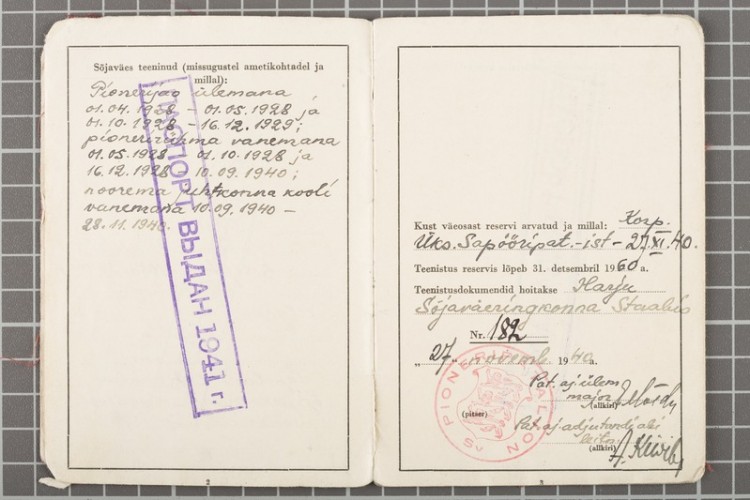 Sõjaväes teeninud (missugustel ametikohtadel ja
millal):
Pioneerjao ülemana
01.04.1928 – 01.05.1928 ja
01.10.1928 – 16.12.1929;
pioneerrühma vanemana
01.05.1928 – 01.10.1928 ja
16.12.1928 10.09.1940;
noorema juhtkonna kooli
vanemana 10.09.1940 –
28.11.1940.
ПАСПОРТ ВЫДАН 1941 г.
2
Kust väeosast reservi arvatud ja millal: Korp.
Üks. Sapööripat.-ist – 27.XI.40.
Teenistus reservis lõpeb 31. detsembril 1960 a.
Teenistusdokumendid hoitakse Harju
Sõjaväeringkonna Staabis
Nr. 182
"27" novemb. 1940 a.
Pat. aj. ülem
major
(allkiri)
(pitser)
PIONEERPATALJON
Pat. aj. adjutandi abi
(allkiri)
3